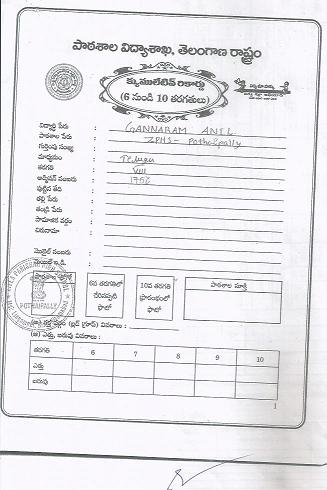 పాఠశాల విద్యాశాఖ, తెలంగాణ రాష్ట్రం
క్యుములేటివ్ రికార్డు
(6 నుండి 10 తరగతులు)
విద్యార్థి పేరు : GANNARAM ANIL
పాఠశాల పేరు : ZPHS - Pothaipally
గుర్తింపు సంఖ్య :
మాధ్యమం : Telugu
తరగతి : VIII
అడ్మిషన్ నంబరు :
పుట్టిన తేది :
తల్లి పేరు :
తండ్రి పేరు :
సామాజిక వర్గం :
చిరునామా :
మొబైల్ నంబరు :
6వ తరగతిలో చేరినప్పటి ఫొటో
10వ తరగతి ప్రారంభంలో ఫొటో
పాఠశాల
POTHAIPALLY
(అ) రక్త వర్గం (బ్లడ్ గ్రూప్) వివరాలు :
(ఆ) ఎత్తు, బరువు వివరాలు :
తరగతి 6 7 8 9 10
ఎత్తు
బరువు
1